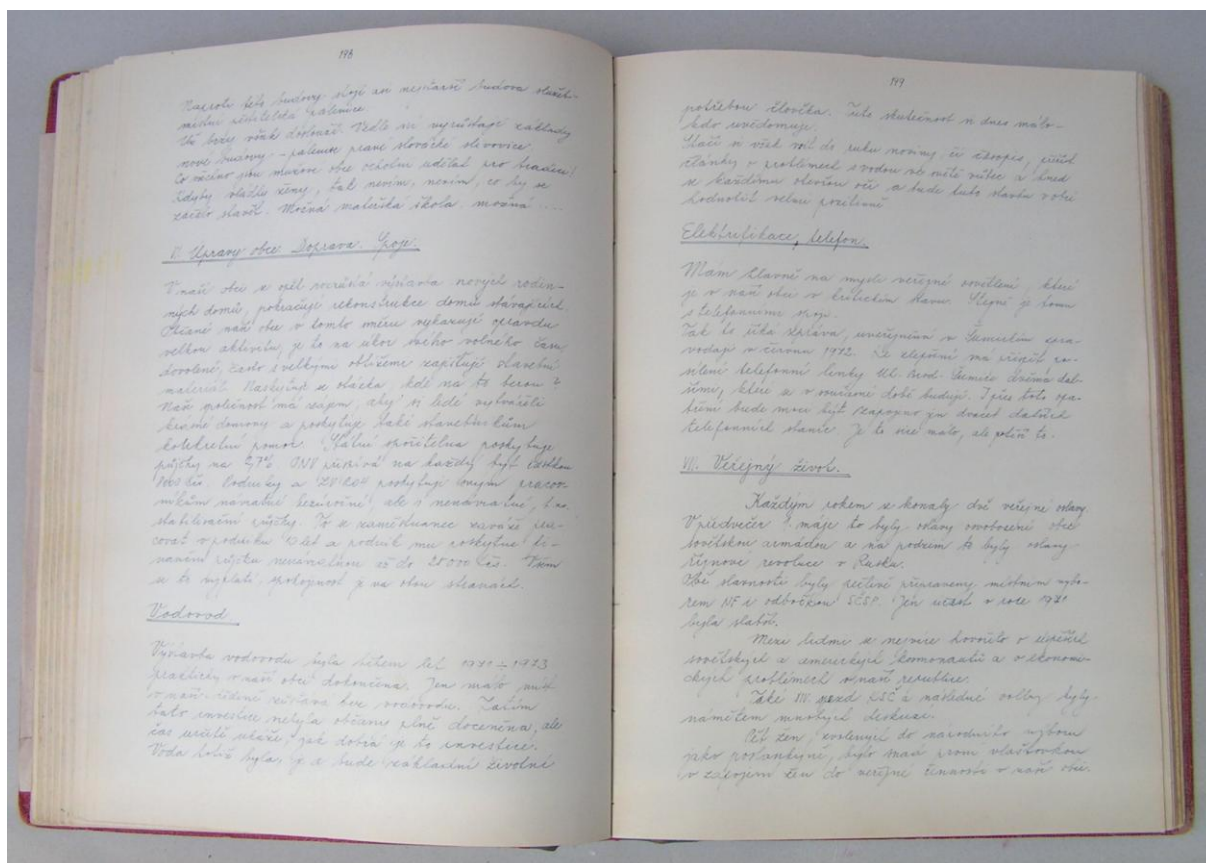 198
Naproti této budovy stojí asi nejstarší budova
místní pěstitelská pálenice.
Ale brzy však doslouží. Vedle ní vyrůstají základy
nové budovy - pálenice pravé slovácké slivovice.
Co všechno jsou mužové obce ochotni udělat pro tradice!
Kdyby vládly ženy, tak nevím, nevím, co by se
začalo stavět. Možná mateřská škola, možná ....
VI. Úpravy obce. Doprava. Spoje.
V naší obci se dál rozrůstá výstavba nových rodin-
ných domů, pokračují rekonstrukce domů stávajících.
Občané naší obce v tomto směru vykazují opravdu
velkou aktivitu, je to na úkor svého volného času,
dovolené, často s velkými obtížemi zajišťují stavební
materiál. Naskýtá se otázka, kde na to berou?
Naše společnost má zájem, aby si lidé vytvářeli
krásné domovy a poskytuje také stavebníkům
konkrétní pomoc. Státní spořitelna poskytuje
půjčky na 2,7%. ONV přispívá na každý byt částkou
Kčs. Podniky a poskytují svým pracov-
níkům návratné bezúročné, ale i nenávratné, t.zv.
stabilizační půjčky. To se zaměstnanec zaváže pra-
covat v podniku let a podnik mu poskytne tz
půjčku nenávratnou až do 20 000 Kčs. Všem
se to vyplatí, spokojenost je na obou stranách.
Vodovod
Výstavba vodovodu byla během let 1971 ÷ 1973
prakticky v naší obci dokončena. Jen málo míst
v naší dědině zůstává bez vodovodu. Zatím
tato investice nebyla občany plně doceněna, ale
čas určitě ukáže, jak dobrá je to investice.
Voda totiž byla, je a bude základní životní
199
potřebou člověka. Tuto skutečnost si dnes málo-
kdo uvědomuje.
Stačí si však vzít do ruky noviny, či časopis, přečíst
články o problémech s vodou ve světě vůbec a hned
se každému otevřou oči a bude tuto stavbu v obci
hodnotit velmi pozitivně.
Elektrifikace, telefon.
Mám hlavně na mysli veřejné osvětlení, které
je v naší obci v kritickém stavu. Stejně je tomu
s telefonními spoji.
Tak to říká zpráva, uveřejněná v zpra-
vodaji v červnu 1972. Ke zlepšení má přispět po-
sílení telefonní linky Uh. Brod. dvěma dal-
šími, které se v současné době budují. I přes toto opa-
tření bude moci být zapojeno jen dvacet dalších
telefonních stanic. Je to sice málo, ale potěší to.
VII. Veřejný život.
Každým rokem se konaly dvě veřejné oslavy.
V předvečer 1. máje to byly oslavy osvobození obce
sovětskou armádou a na podzim to byly oslavy
říjnové revoluce v Rusku.
Obě slavnosti byly pečlivě připraveny místním výbo-
rem NF i odbočkou SČSP. Jen účast v roce 1971
byla slabší.
Mezi lidmi se nejvíce hovořilo o úspěších
sovětských a amerických kosmonautů a o ekonomi-
ckých problémech v naší republice.
Také XIV. sjezd KSČ a následné volby byly
námětem mnohých diskusí.
Pět žen, zvolených do národního výboru
jako poslankyně, bylo snad první vlaštovkou
v zapojení žen do veřejné činnosti v naší obci.